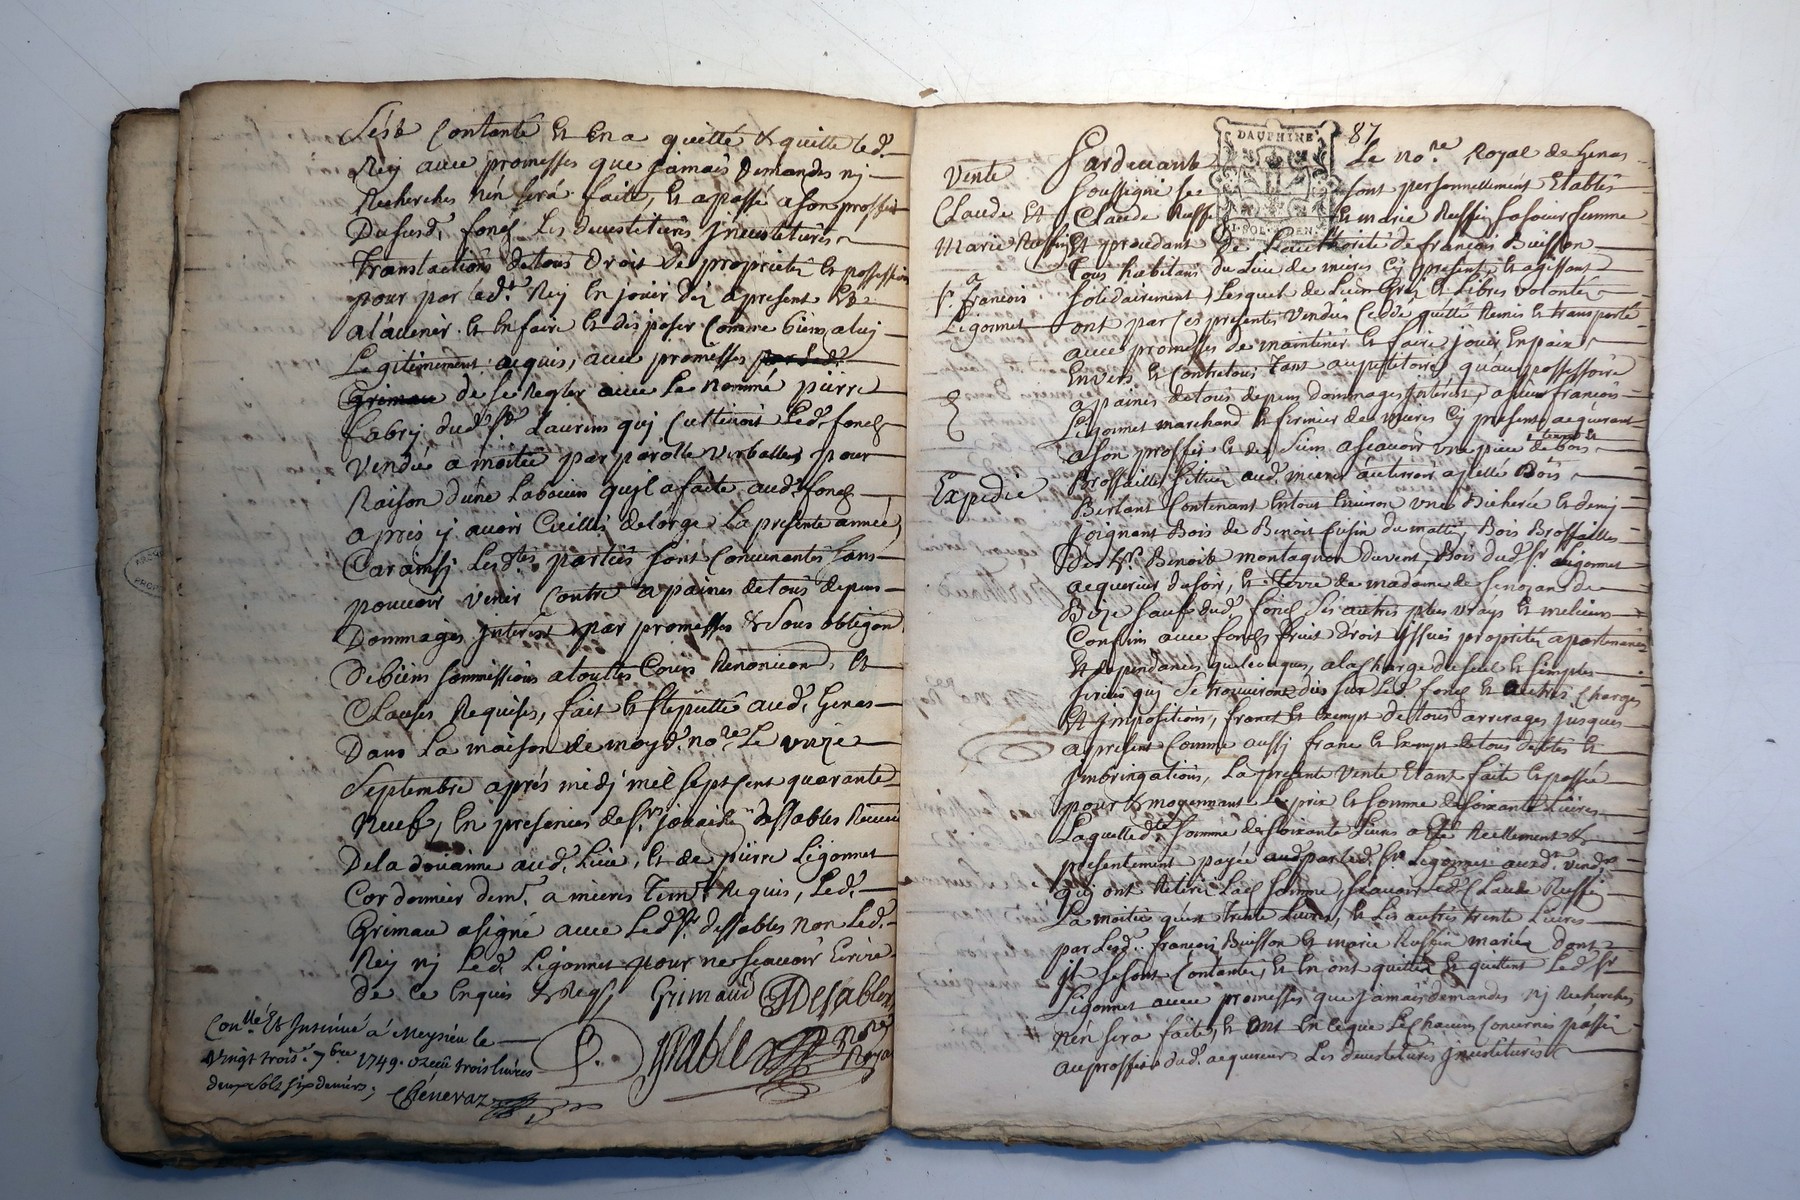 s'est Contanté Et En a quitté & quitte led.
Rey avec promesses que jamais Demandes nj
Recherches n'en sera faite, Et a passé a son proffit
Dususd. fond Les devestiturës jnvestiturës
translations de tous Droit De proprietés Et possession
pour par led.t Rey En jouir dez apresent Et
al'avenir Et En faire Et disposer Comme bien a luj
Legitimement acquis, avec promesses
de se Regler avec Le nommé pierre
fabry dud. St Laurins quj Cultivoit Led. fond
Vendu a moitié par parolle verballes, pour
Raison d'une Labour qu'jl a faite aud. fond
apres y avoir Cueilli de l'orge La presente année,
Car ainsj Lesd.tes parties sont Convenantes sans
pouvoir venir Contre a paines de tous depens
Dommages jnterest par promesses & sous obligõn
De biens soumissions a touttes Cours Renonciõn, Et
Clauses Requises, fait Et aud. Genas
Dans La maison de moyd. no.re Le unze
Septembre aprés midj mil sept Cent quarante
Neuf, En presences de Sr. dessables Receveur
De la doüanne aud. Lieu, Et de pierre Ligonnet
Cordonnier dem.t a mieres tem. Requis, Led.
Grimau a signé avec Led. Sr. dessables non Led.
Rey nj Led. Ligonnet pour ne sçavoir Ecrire
de ce Enquis & Reqs, Grimaud Desables
Con.llé Et Insinüé á Meyzieu le
vingt trois.e 7bre 1749. Receü trois livres
deux sols six deniers; Chenevaz
no.re Royal
87
DAUPHINE
Vente
Claude Et
Marie Ruffin
a
Sr. francois
Ligonnet
Expedie
Pardevant Le no.re Royal de Genas
soussigné se sont personnellement Etablis
Claude Ruffin Et marie Ruffin sa soeur femme
Et procedant De L'authorité de francois Buisson
Tous habitans du Lieu de mieres cy present Et agissant
solidairement, Lesquels de Leur Grez Et Libres volontés
ont par Ces presentes Vendus Cedé quitté Remis Et transporté
avec promesses de maintenir Et faire jouir En paix
Envers Et Contre tous tant au petitoire qu'au possessoire
a paines de tous depens dommages jnterest, a sieur francois
Ligonnet marchand Et fermier de mieres Cy present acquereur
a son proffit Et des siens asçavoir une piece terre Et de bois
Brossailles sittuée aud. mieres au terroir apellé Bois
Berlant Contenant En tout Environ une Bicherée Et demj
joignant Bois de Benoit Cusin du matin, Bois Brossailles
Des hrs. Benoit montagnon du vent, Bois dud. Sr. Ligonnet
acquereur du soir, Et Terre de madame de senozan de
Bize sauf dud. fond ses autres plus vrays Et melieurs
Confins avec fonds fruit droit jssues proprietés apartenances
Et dependances quelconques, a la Charge du seul Et simple
servis quj se trouveront dûs sur Led. fond Et autres Charges
Et jmpositions, franct Et Exempt de tous arrerages jusques
apresent Comme aussj franc Et Exempt de tous dettes Et
jmbringations, La presente Vente Etant faitte Et passée
pour & moyennant Le prix Et somme de soixante Livres
Laquelle d.te somme de soixante Livres a Eté Reellement &
presentement payée par led. Sr. Ligonnet auxd. vend.rs
quj ont Retiré Lad. somme, sçavoir Led. Claude Ruffin
La moitié qu'est trente Livres, Et Les autres trente Livres
par Lesd. francois Buisson Et marie Ruffin mariés dont
jls se sont Contantés, Et En ont quittés Et quittent Led. Sr.
Ligonnet avec promesses que jamais demandes nj Recherches
n'en sera faite, Et Ont En ce que Les Chacun Concernes passé
au proffit dud. acquereur Les devestitures jnvestitures